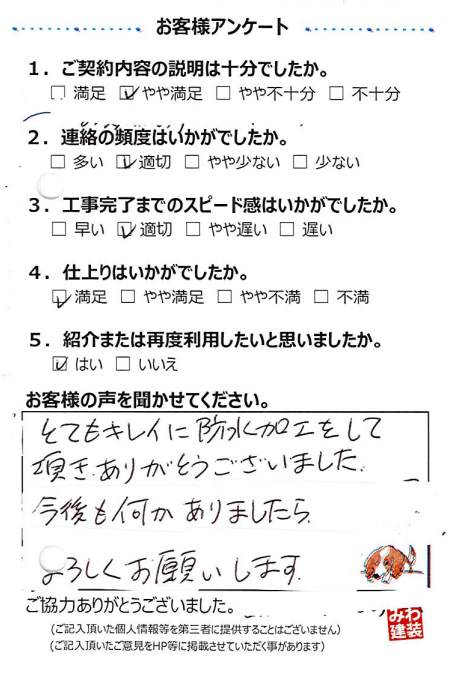 お客様アンケート
１．ご契約内容の説明は十分でしたか。
□ 満足 ☑ やや満足 □ やや不十分 □ 不十分
２．連絡の頻度はいかがでしたか。
□ 多い ☑ 適切 □ やや少ない □ 少ない
３．工事完了までのスピード感はいかがでしたか。
□ 早い ☑ 適切 □ やや遅い □ 遅い
４．仕上りはいかがでしたか。
☑ 満足 □ やや満足 □ やや不満 □ 不満
５．紹介または再度利用したいと思いましたか。
☑ はい □ いいえ
お客様の声を聞かせてください。
とてもキレイに防水加工をして
頂き、ありがとうございました。
今後も何かありましたら、
よろしくお願いします。
ご協力ありがとうございました。
みわ
建装
(ご記入頂いた個人情報等を第三者に提供することはございません)
(ご記入頂いたご意見をHP等に掲載させていただく事があります)